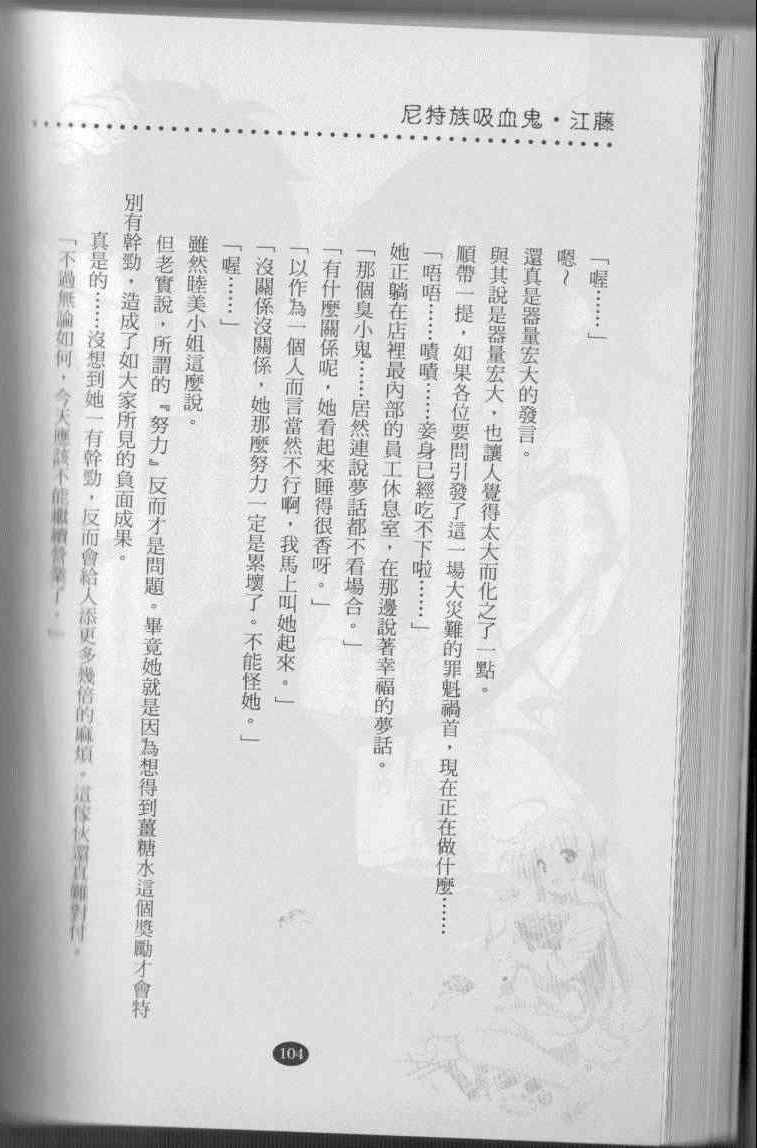 尼特族吸血鬼・江藤
「喔……」
嗯～
還真是器量宏大的發言。
與其說是器量宏大，也讓人覺得太大而化之了一點。
順帶一提，如果各位要問引發了這一場大災難的罪魁禍首，現在正在做什麼……
「唔唔……嘖嘖……妾身已經吃不下啦……」
她正躺在店裡最內部的員工休息室，在那邊說著幸福的夢話。
「那個臭小鬼……居然連說夢話都不看場合。」
「有什麼關係呢，她看起來睡得很香呀。」
「以作為一個人而言當然不行啊，我馬上叫她起來。」
「沒關係沒關係，她那麼努力一定是累壞了。不能怪她。」
「喔……」
雖然睦美小姐這麼說。
但老實說，所謂的『努力』反而才是問題。畢竟她就是因為想得到薑糖水這個獎勵才會特
別有幹勁，造成了如大家所見的負面成果。
真是的……沒想到她一有幹勁，反而會給人添更多幾倍的麻煩。這傢伙還真難對付。
「不過無論如何，今天應該不能繼續營業了。」
104